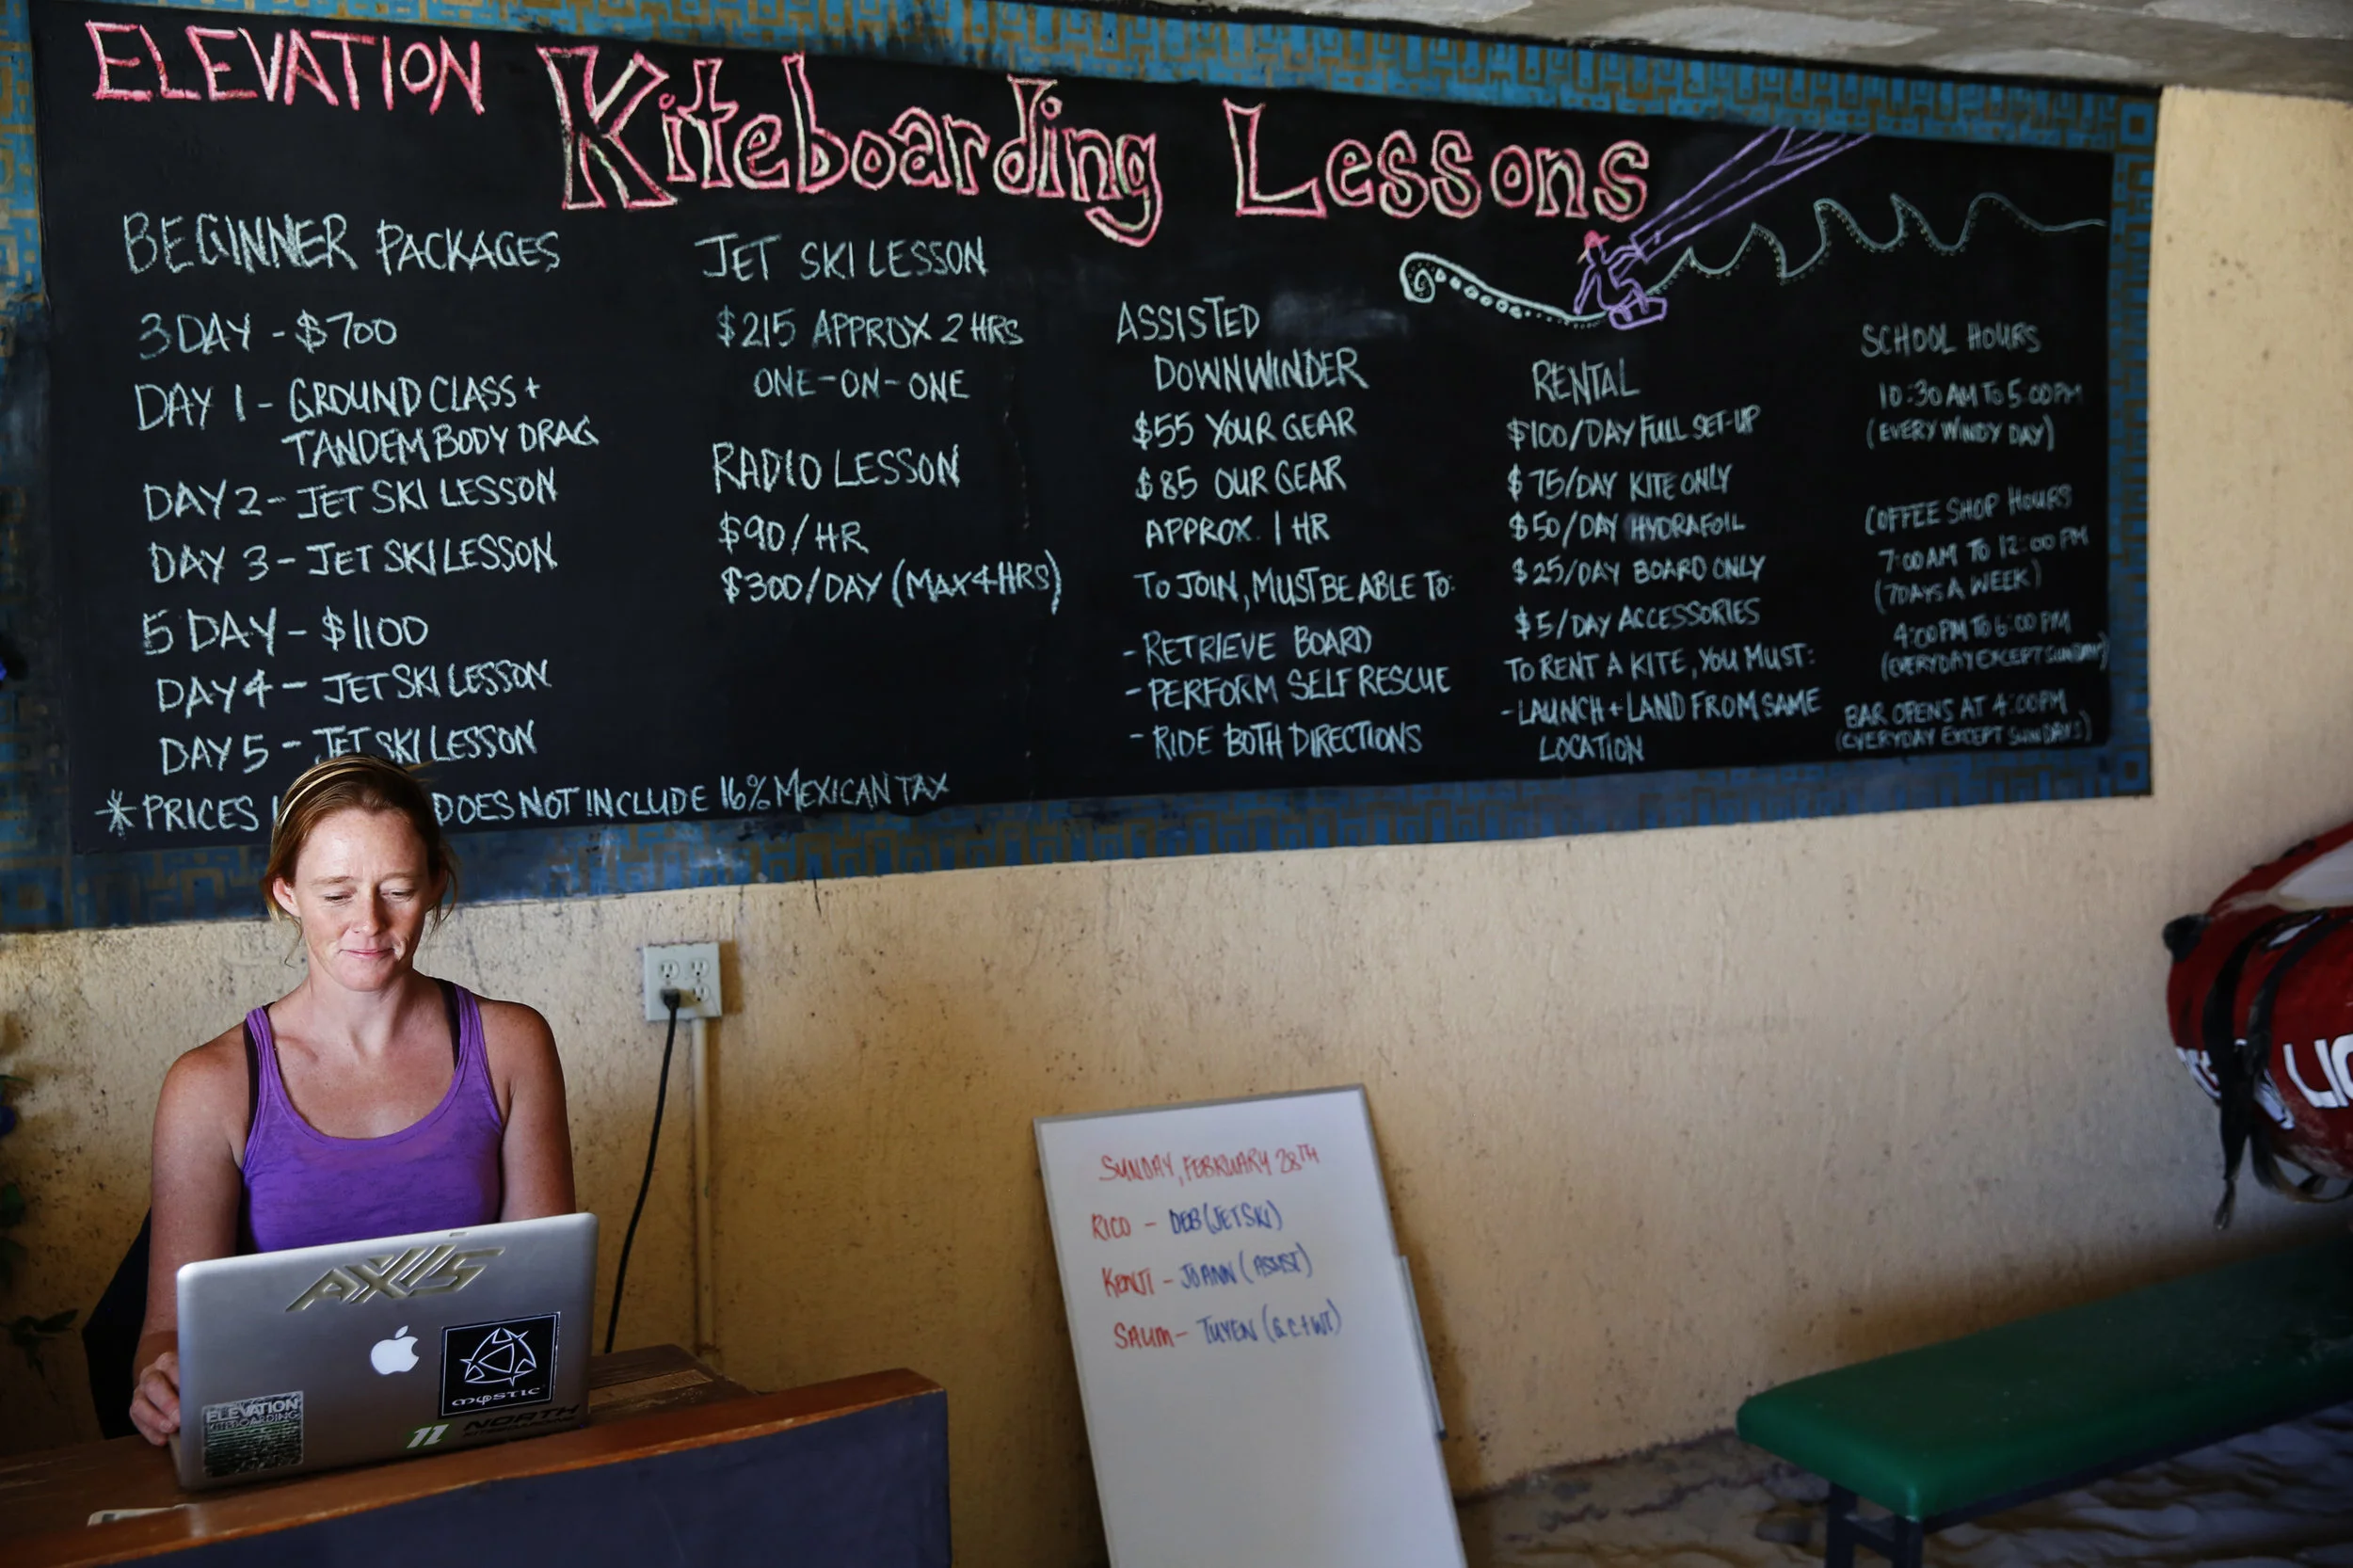 ELEVATION Kiteboarding Lessons
BEGINNER PACKAGES
3 DAY - $700
DAY 1 - GROUND CLASS +
TANDEM BODY DRAG
DAY 2 - JET SKI LESSON
DAY 3 - JET SKI LESSON
5 DAY - $1100
DAY 4 - JET SKI LESSON
DAY 5 - JET SKI LESSON
* PRICES DOES NOT INCLUDE 16% MEXICAN TAX
JET SKI LESSON
$215 APPROX 2 HRS
ONE-ON-ONE
RADIO LESSON
$90/HR
$300/DAY (MAX 4 HRS)
ASSISTED
DOWNWINDER
$55 YOUR GEAR
$85 OUR GEAR
APPROX. 1 HR
TO JOIN, MUST BE ABLE TO:
- RETRIEVE BOARD
- PERFORM SELF RESCUE
- RIDE BOTH DIRECTIONS
RENTAL
$100/DAY FULL SET-UP
$75/DAY KITE ONLY
$50/DAY HYDRAFOIL
$25/DAY BOARD ONLY
$5/DAY ACCESSORIES
TO RENT A KITE, YOU MUST:
- LAUNCH + LAND FROM SAME
LOCATION
SCHOOL HOURS
10:30 AM TO 5:00 PM
(EVERY WINDY DAY)
COFFEE SHOP HOURS
7:00 AM TO 12:00 PM
(7 DAYS A WEEK)
4:00 PM TO 6:00 PM
(EVERYDAY EXCEPT SUNDAY)
BAR OPENS AT 4:00 PM
(EVERYDAY EXCEPT SUNDAYS)
SUNDAY, FEBRUARY 28TH
RICO - DEB (JETSKI)
KENJI - JOANN (ASSIST)
SALIM - TUYEN (GC+WT)
AXIS
MYSTIC
ELEVATION
KITEBOARDING
NORTH
KITEBOARDING